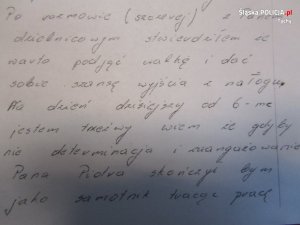 Śląska POLICJA.pl
Tychy
Po rozmowie (szczerej) z Panem
dzielnicowym stwierdziłem że
warto podjąć walkę i dać
sobie szansę wyjścia z nałogu.
Na dzień dzisiejszy od 6-me
jestem trzeźwy wiem że gdyby
nie determinacja i zaangażowanie
Pana Piotra skończył bym
jako samotnik tracąc pracę